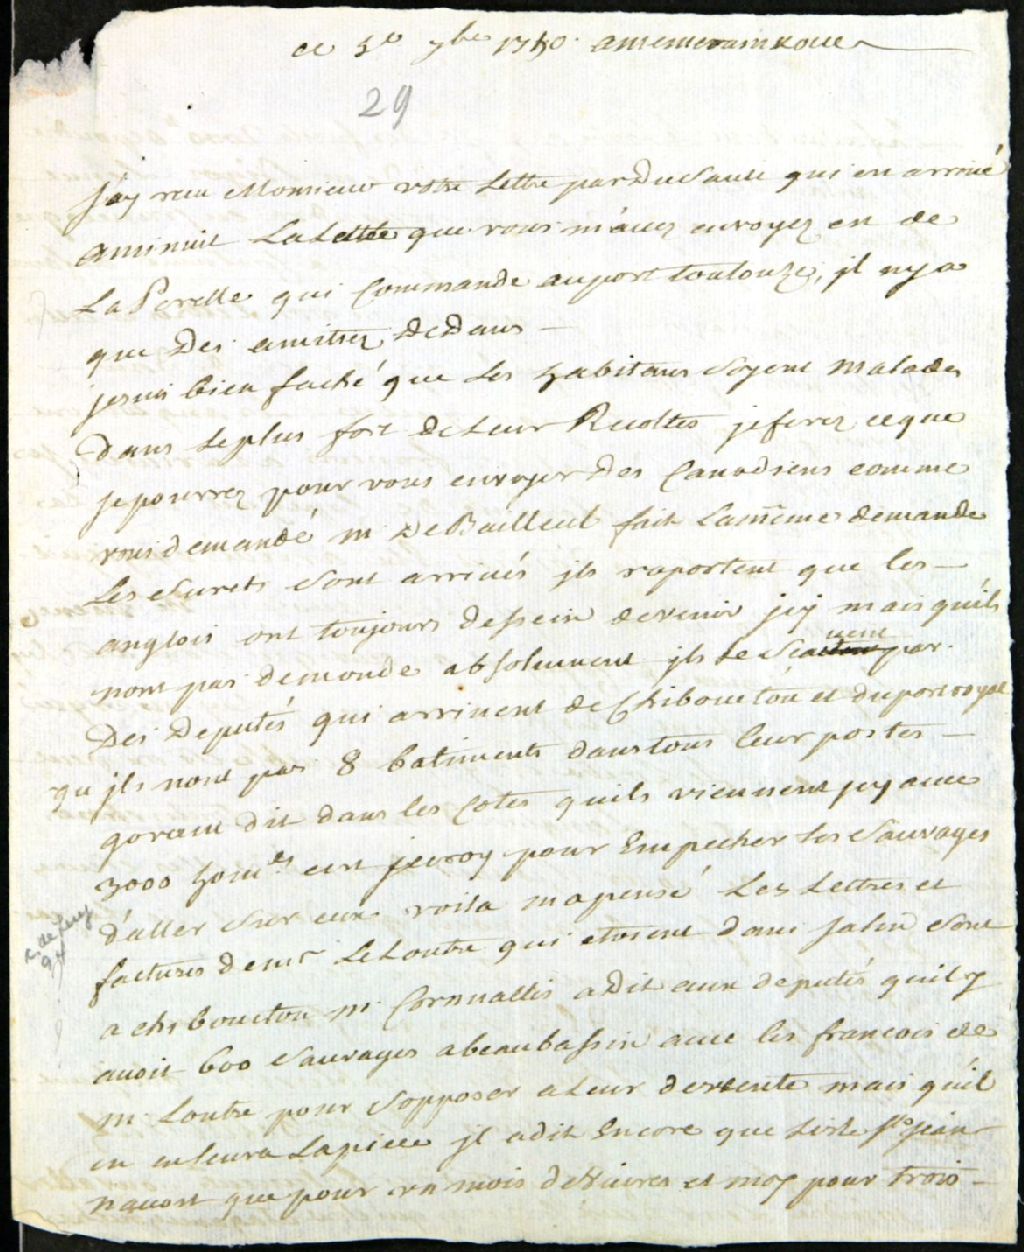 ce 5e 7bre 1750. a memeramkoue
29
J'ay recu Monsieur votre Lettre par DuSault qui en arrivé
a minuit La Lettre que vous m'avez envoyez en de
La Perelle qui Commande au port toulouze, jl ny a
que Des amitiez DeDans —
je suis bien faché que Les habitans Soyent malades
Dans le plus fort De Leur Recoltes je ferez ce que
je pourrez pour vous envoyer Des Canadiens comme
vous demandé m DeBailleul fait La même demande
Les Surets Sont arrivés jls raportent que les —
anglois ont toujours dessein de venir jcy mais quils
nont pas de monde absolument jls le Scavent par
Des Deputés qui arrivent de Chiboucton et du port royal
qu jls nont pas 8 batiments dans tous leur postes —
goram dit dans les Cotes quils viennent jcy avec
3000 homes pour Empecher les Sauvages
d'aller Sur eux voila ma pensé Les Lettres et
factures de mr LeLoutre qui etoient dans Jalin Sont
a chiboucton m. Cornuallis a Dit aux deputés quil y
avoit 600 Sauvages a beaubassin avec les francois de
m. Loutre pour Sopposer a Leur descente mais quil
en enleura La piece jl a dit Encore que Lisle St jean
navoit que pour un mois de Vivres et moy pour trois —
R. de Lery
94